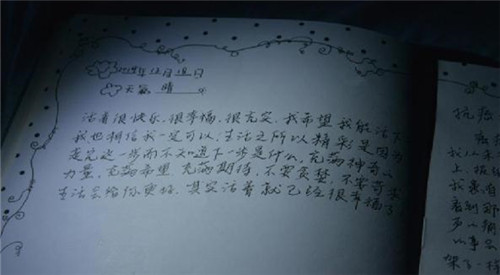 年12月18日
天气 晴
活着很快乐,很幸福,很充实,我希望我能活下
我也相信我一定可以,生活之所以精彩是因为
走完这一步而不知道下一步是什么,充满神奇的
力量,充满希望,充满期待,不要哀愁,不要苛求
生活会给你更好,其实活着就已经很幸福了
抗癌
我从
上,
我
看到那
多人
以事
架了一